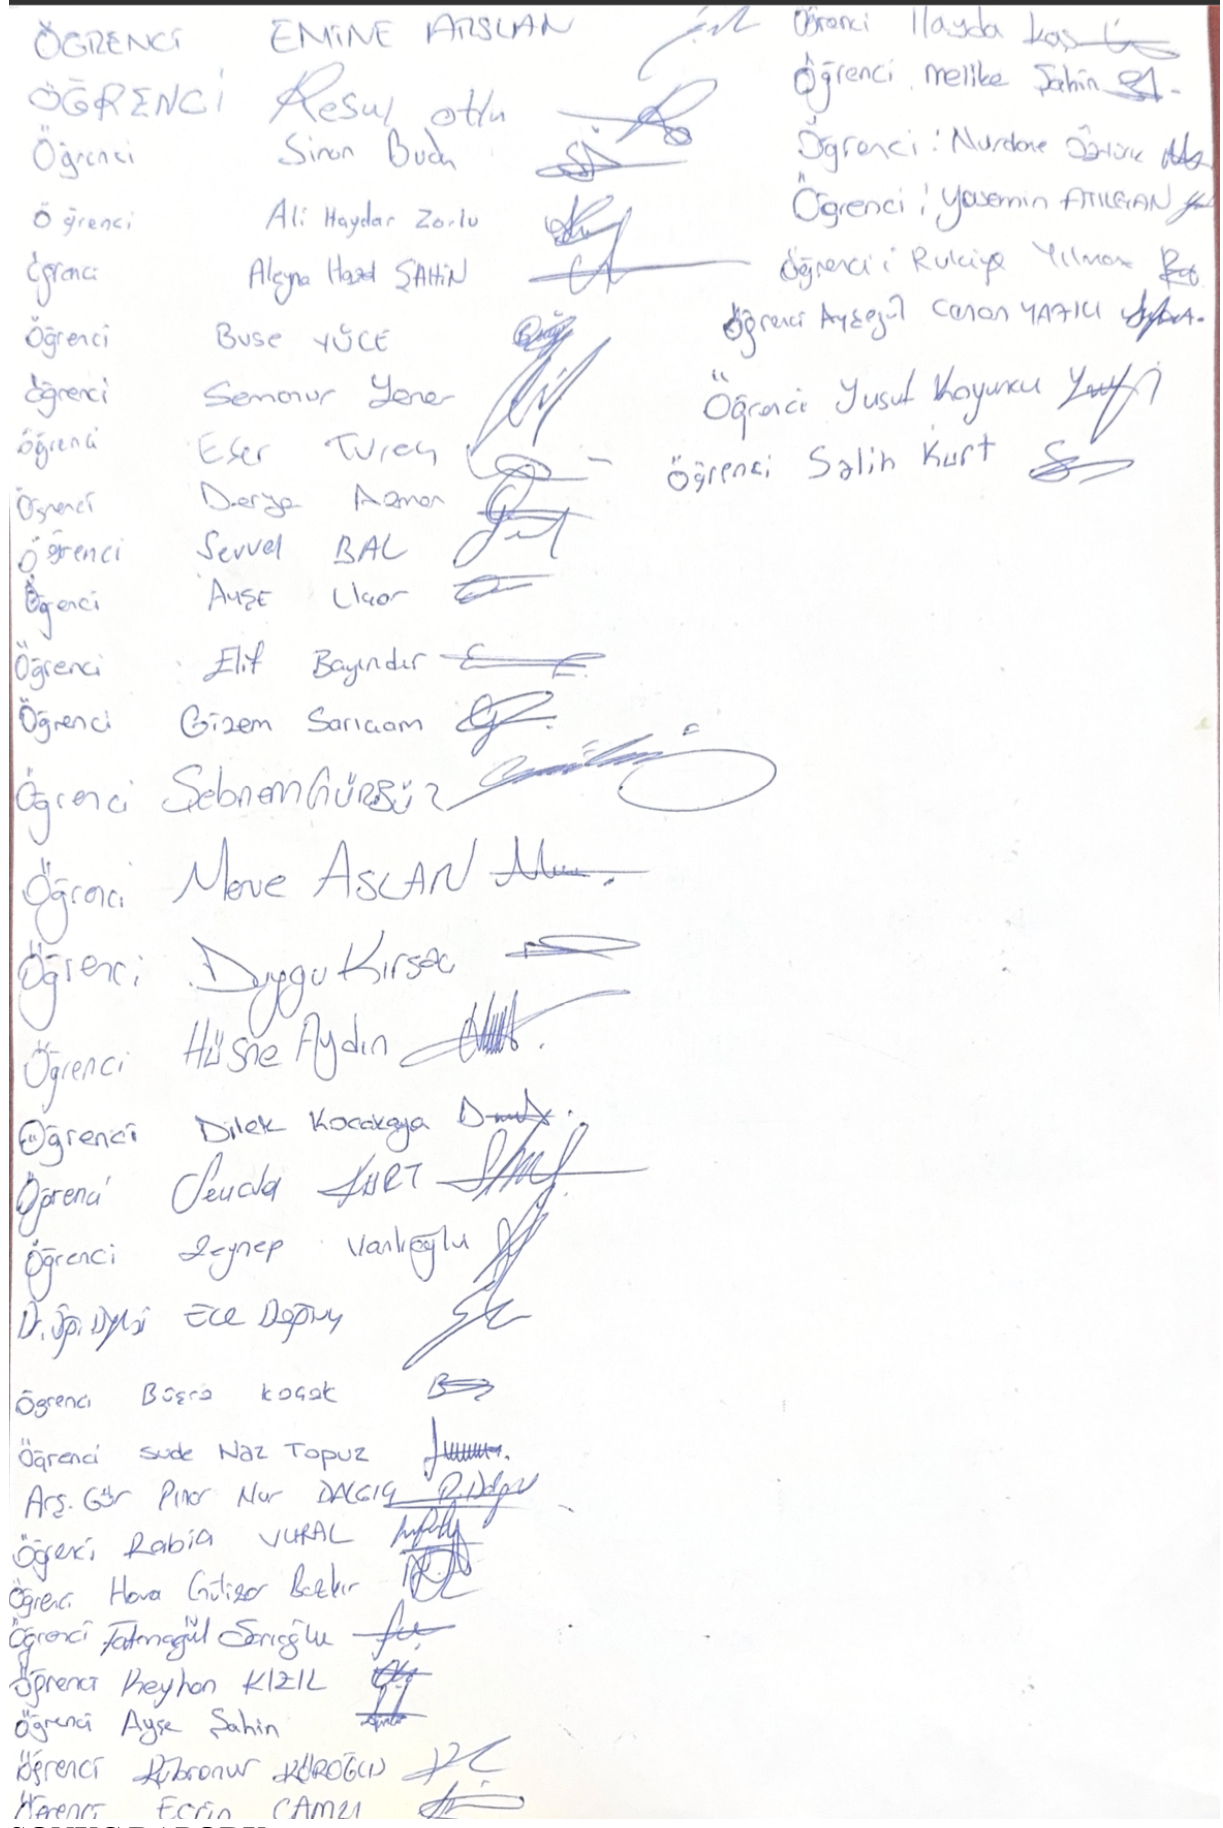 ÖĞRENCİ EMİNE ARSLAN
ÖĞRENCİ Resul
Öğrenci Sinan
Öğrenci Ali Haydar Zorlu
Öğrenci Aleyna ŞAHİN
Öğrenci Buse YÜCE
Öğrenci Semanur Yener
Öğrenci
Öğrenci Derya
Öğrenci Sevval BAL
Öğrenci AYŞE
Öğrenci Elif Bayındır
Öğrenci Gizem Sarıcam
Öğrenci Şebnem GÜRBÜZ
Öğrenci Merve ASLAN
Öğrenci Duygu
Öğrenci Hüsne Aydın
Öğrenci Dilek Kocakaya
Öğrenci Sevda KURT
Öğrenci Zeynep Varlıoğlu
ECE
Öğrenci Büşra Koçak
Öğrenci Sude Naz Topuz
Arş. Gör Pınar Nur DALGIÇ
Öğrenci Rabia VURAL
Öğrenci Hava Bozkır
Öğrenci Fatmagül Sarıoğlu
Öğrenci Reyhan KIZIL
Öğrenci Ayşe Şahin
Öğrenci Kübranur KÖROĞLU
Öğrenci Ecrin CAMZI
Öğrenci İlayda Koş
Öğrenci Melike Şahin
Öğrenci : Nurdane Öztürk
Öğrenci : Yasemin ATILGAN
Öğrenci : Rukiye Yılmaz
Öğrenci Ayşegül Canan YAZICI
Öğrenci Yusuf Koyuncu
Öğrenci Salih Kurt